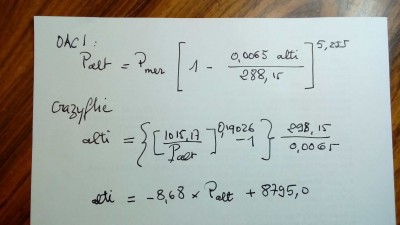 OACI :
Palt = Pmer [ 1 - 0,0065 alti / 288,15 ]^5,255
Crazyflie
alti = { [ 1015,17 / Palt ]^0,19026 - 1 } 298,15 / 0,0065
alti = -8,68 × Palt + 8795,0